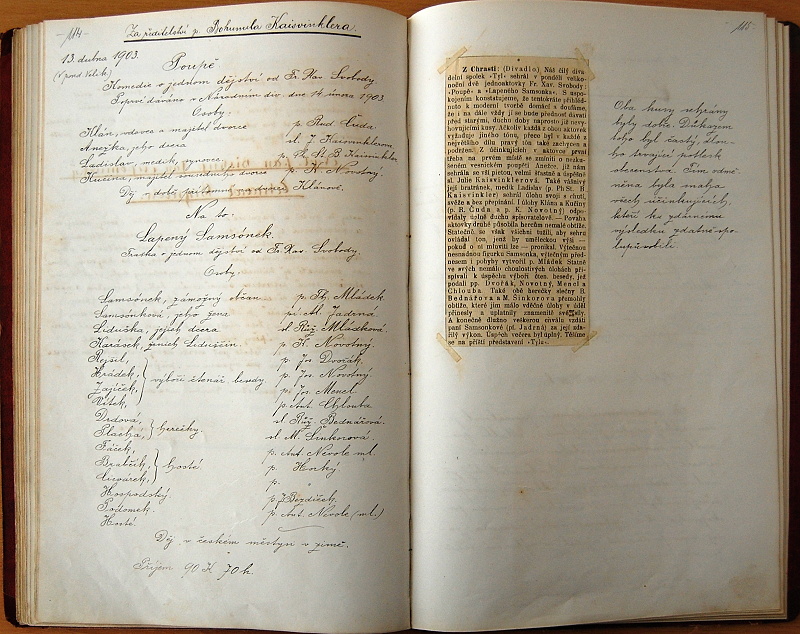 -114-
Za ředitelství p. Bohumila Kaisvinklera.
13. dubna 1903.
Poupě
Komedie v jednom dějství od Fr. Xav. Svobody
Poprvé dáváno v Národním div. dne 14 února 1903.
Osoby.
Klán, vdovec a majetel dvorce p. Rud. Čuda.
Anežka, jeho dcera sl. J. Kaisvinklerova
Ladislav, medik, synovec Ph. St. B. Kaisvinkler
Kučina, majitel sousedního dvorce p. K. Novotný.
Děj v době přítomné na dvorci Klánově.
Na to:
Lapený Samsónek.
Fraška v jednom dějství od Fr. Xav. Svobody.
Osoby.
Samsónek, zámožný občan p. Fr. Mládek
Samsónková, jeho žena pí. Al. Jadrná
Liduška, jejich dcera sl. Růž. Mládková.
Karásek, ženich Liduščin. p. K. Novotný.
Rejsil, p. Jos Dvořák.
Hrádek, p. Jos. Novotný
Zajíček, výboři čtenář. besedy p. Jos. Mencl
Vítek, p. Ant. Chlouba
Drdová, sl Růž. Bednářová.
Plachá, herečky. sl M. Šinkorová.
Fáček, p. Ant. Nevole ml.
Brabčík, hosté. p. Horký
Civárek, p.
Hospodský. p. J. Bezdíček,
Podomek. p. Ant. Nevole (ml.)
Hosté.
Děj v českém městysi v zimě.
Příjem 90 K 70 h.
115-
Z Chrasti: (Divadlo) Náš čilý diva
delní spolek »Tyl« sehrál v pondělí veliko-
noční dvě jednoaktovky Fr. Xav. Svobody:
»Poupě« a »Lapeného Samsonka«. S uspo-
kojením konstatujeme, že tentokráte přihlédnu-
to k moderní tvorbě domácí a doufáme,
že i na dále vždy jí se bude přednost dávati
před staršími, duchu doby naprosto již nevy-
hovujícími kusy. Ačkoliv každá z obou aktovek
vyžaduje jiného tónu, přece byl v každé z
největšího dílu pravý tón také zachycen a
podržen. Z účinkujících v aktovce první
třeba na prvém místě se zmíniti o nezkа-
ženém vesnickém poupěti Anežce, již nám
sehrála se vší pietou, velmi šťastně a úspěšně
sl. Julie Kaisvinklerová. Také vášnivý
její bratránek, medik Ladislav (p. Ph St. B.
Kaisvinkler) sehrál úlohu svoji s chutí,
svěže a bez přepínání. I úlohy Klána a Kučiny
(p. R. Čuda a p. K. Novotný) odpo-
vídaly úplně duchu spisovatelově. — Povaha
aktovky druhé působila hercům nemalé obtíže.
Statečně, se však všichni tužili, aby sehru
ovládal ton, jenž by uměleckou výši —
pokud o ni mluviti lze — pronikal. Výtečnou
nesnadnou figurku Samsonka, výtečným před-
nesem i pohyby vytvořil p. Mládek Statně
ve svých nemálo choulostivých úlohách při-
spívali k úspěchu výboři čten. besedy, jež
podali pp. Dvořák, Novotný, Mencl a
Chlouba. Také obě herečky slečny B.
Bednářova a M. Šinkorova přemohly
obtíže, které jim málo vděčné úlohy v úděl
přinesly a uplatnily znamenitě své síly.
A konečně dlužno veškerou chválu vzdáti
paní Samsonkové (pí. Jadrná) za její zda-
řilý výkon. Úspěch večera byl úplný. Těšíme
se na příští představení »Tyla«.
Oba kusy sehrány
byly dobře. Důkazem
toho byl častý, dlou-
ho trvající potlesk
obecenstva. Tím odmě-
něna byla snaha
všech účinkujících,
kteří ku zdárnému
výsledku zdatně spo-
lupůsobili.